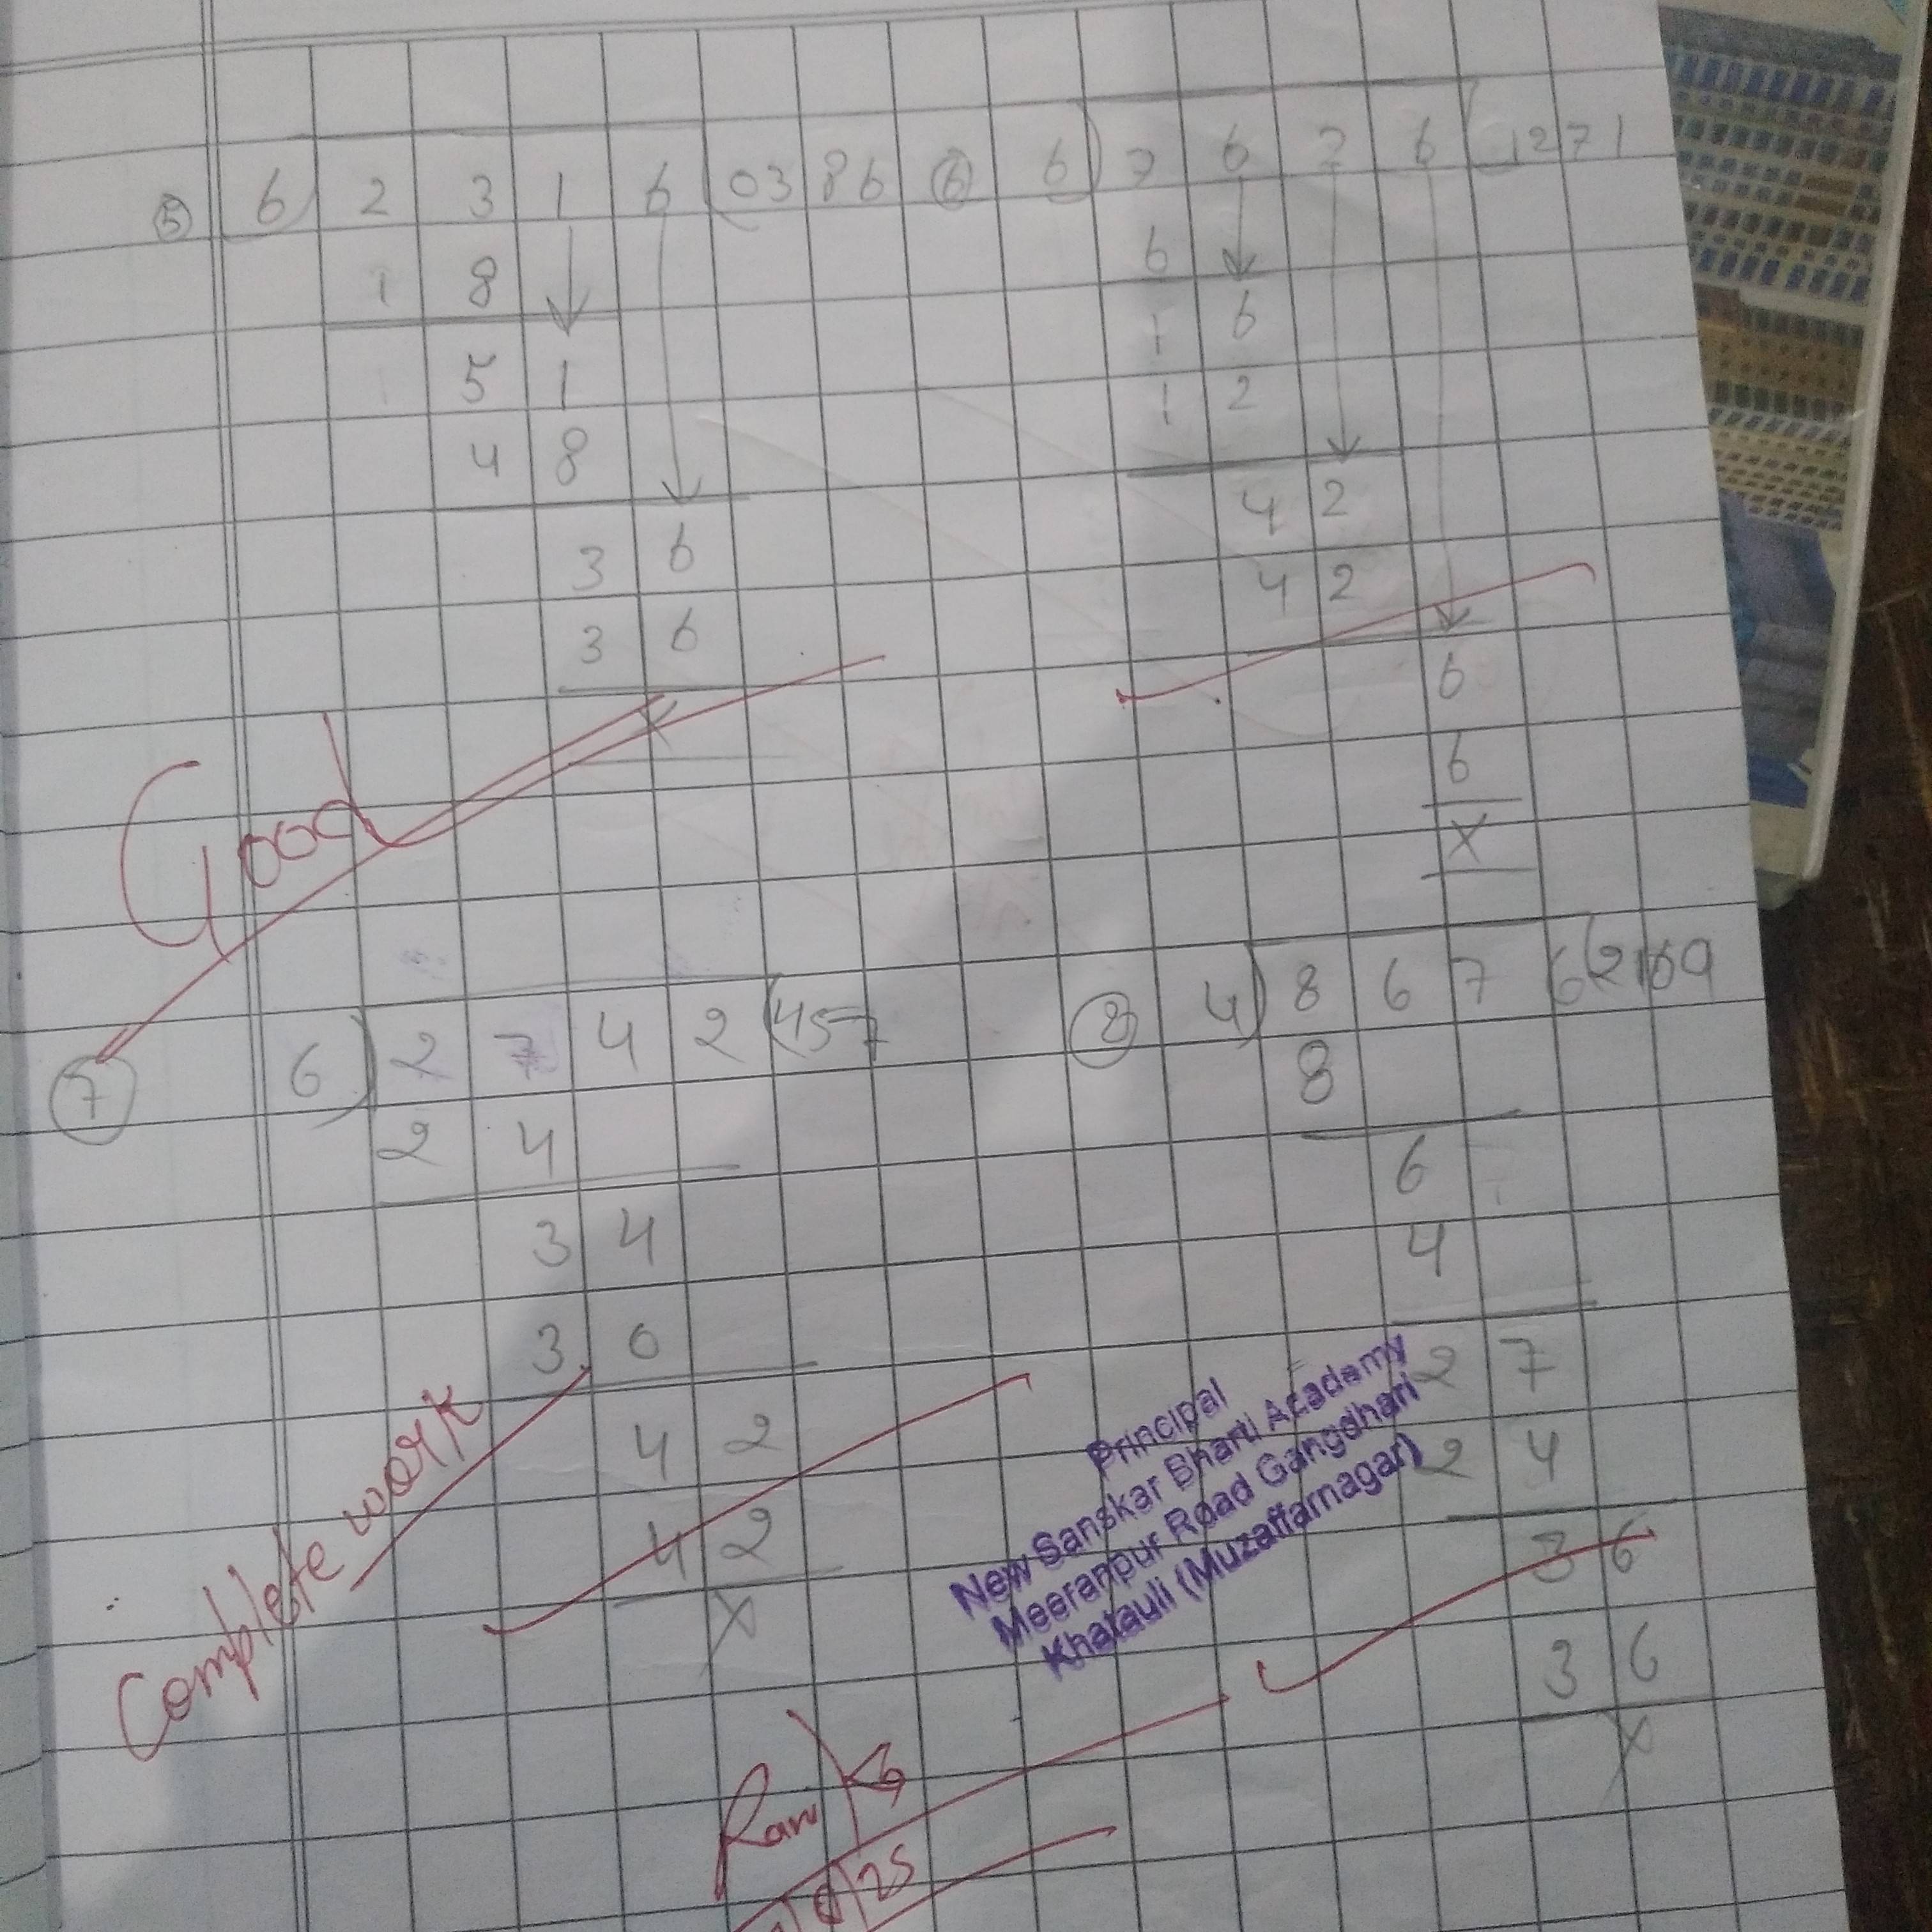 ⑤ 6) 2 3 1 6 (0386
1 8
5 1
4 8
3 6
3 6
x
⑥ 6) 7 6 2 6 (1271
6
1 6
1 2
4 2
4 2
6
6
x
Good
⑦ 6) 2 7 4 2 (457
2 4
3 4
3 0
4 2
4 2
x
⑧ 4) 8 6 7 6 (2169
8
6
4
2 7
2 4
3 6
3 6
x
Complete work
Principal
New Sanskar Bharti Academy
Meeranpur Road Gangdhari
Khatauli (Muzaffarnagar)
25